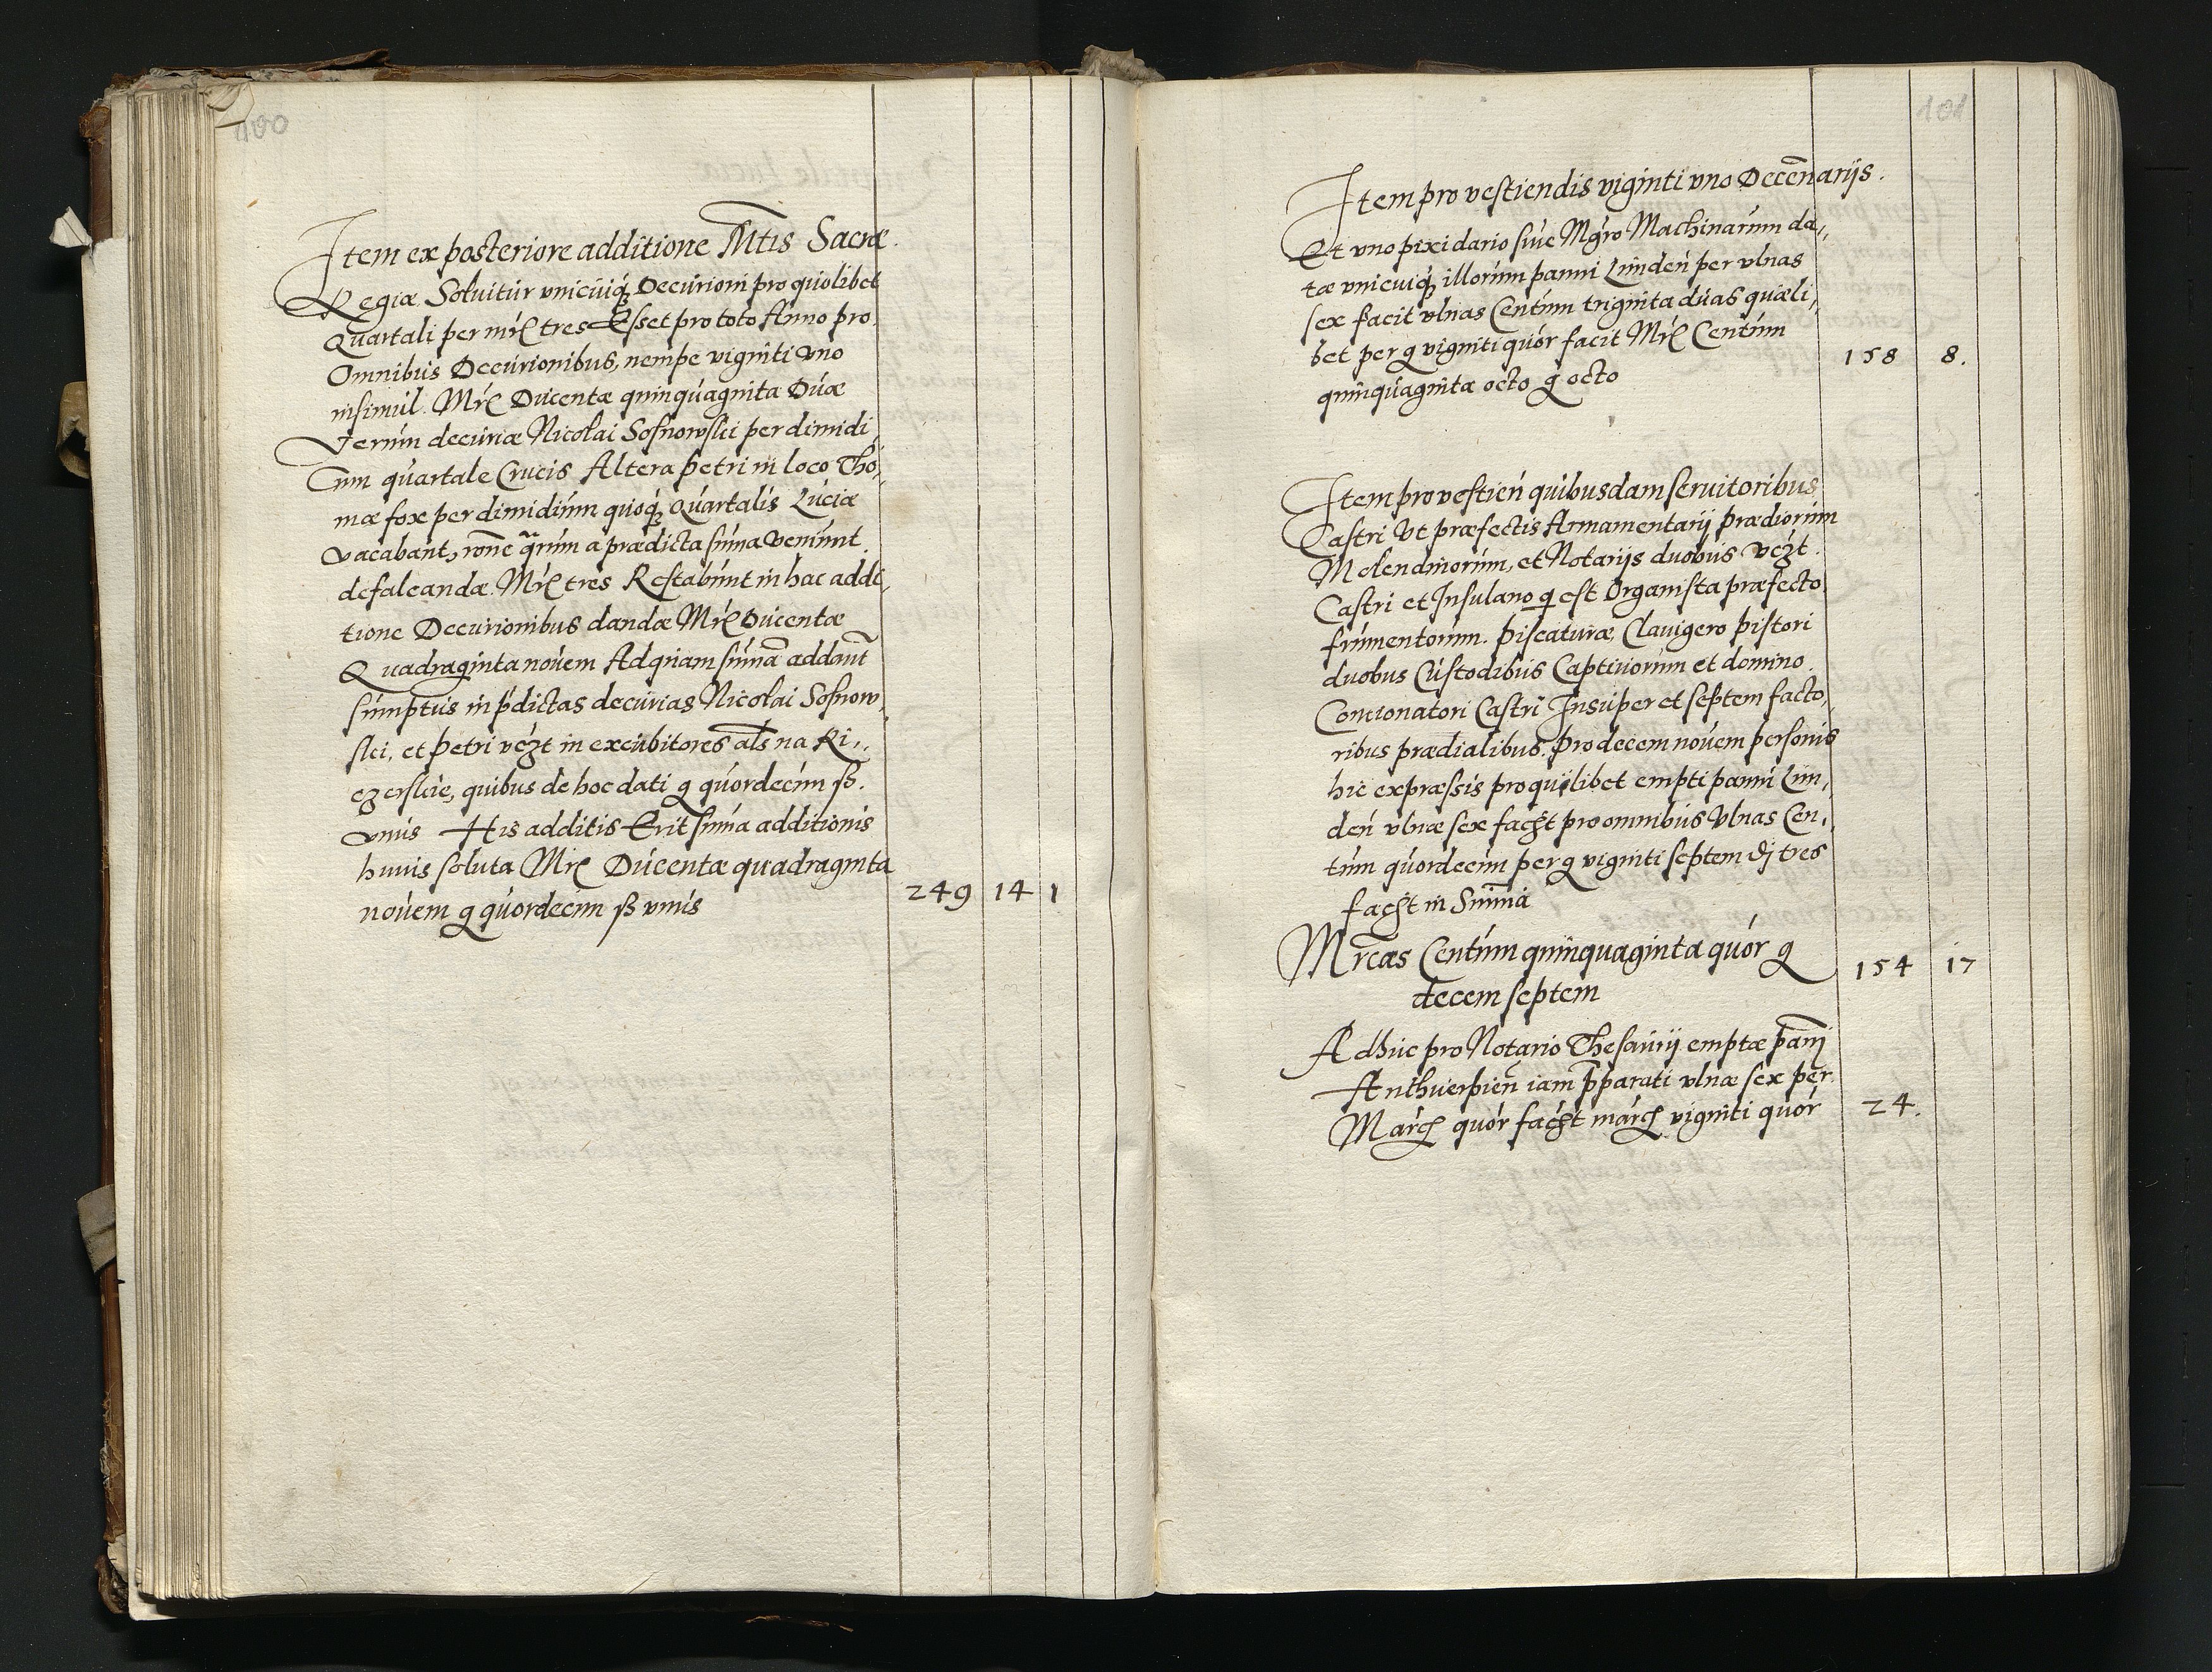 100
Item ex posteriore additione Mtis Sacræ
Regiæ Soluitur vnicuiq₃ Decurioni pro quolibet
Quartali per mrc tres Esset pro toto Anno pro
Omnibus Decurionibus, nempe viginti vno
insimul. Mrc Ducentæ quinquaginta Duæ
Verum decuriæ Nicolai Sosnowski per dimidi
um quartale Crucis Altera petri in loco Tho,,
mæ fox per dimidium quoq₃ Quartalis Luciæ
vacabant, rone qrum a prædicta suma veniunt
defalcandæ. Mrc tres Restabunt in hac addi,,
tione Decurionibus dandæ Mrc Ducentæ
Quadraginta nouem Ad quam sumã addunt
sumptus in pdictas decurias Nicolai Sosnow,,
ski, et petri vczt in excubitores als na Ri,,
czerskie, quibus de hoc dati g quordecim ß.
vnus His additis Erit suma additionis
huius soluta Mrc Ducentæ quadraginta
nouem g quordecim ß vnus
249 14 1
101
Item pro vestiendis viginti vno Decenarijs.
Et vno pixidario siue Mgro Machinarum da,,
tæ vnicuiq₃ illorum panni Lunden per vlnas
sex facit vlnas Centum triginta duas quæli,,
bet per g viginti quor facit Mrc Centum
quinquaginta octo g octo
158 8.
Item pro vestien quibusdam seruitoribus
Castri Vt præfectis Armamentarij prædiorum
Molendinorum, et Notarijs duobus vczt.
Castri et Insulano q est Organista præfecto
frumentorum. piscaturæ, Clauigero pistori
duobus Custodibus Captiuorum et domino
Concionatori Castri Insuper et septem facto,,
ribus prædialibus. Pro decem nouem personis
hic expræssis pro quolibet empti panni Lun,,
den vlnæ sex facht pro omnibus Vlnas Cen,,
tum quordecim per g viginti septem dj tres
facht in Summa
Mrcas Centum quinquaginta quor g
decem septem
154 17
Adhuc pro Notario Thesaurij emptæ panj
Anthuerpien iam pparati vlnæ sex per
March quor facht march viginti quor
24.